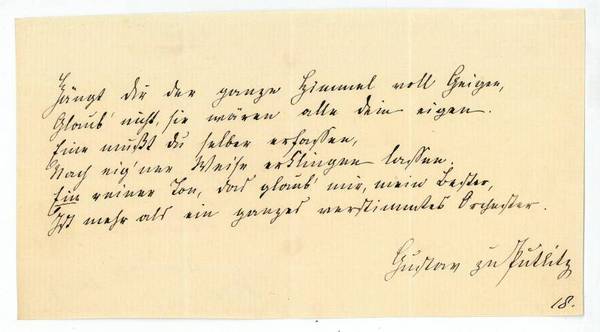 Hängt dir der ganze Himmel voll Geigen,
Glaub' nicht, sie wären alle dein eigen.
Eine mußt du selber erfassen,
Nach eig'ner Weise erklingen lassen.
Ein reiner Ton, das glaub' mir, mein Bester,
Ist mehr als ein ganzes verstimmtes Orchester.
Gustav zu Putlitz
18.